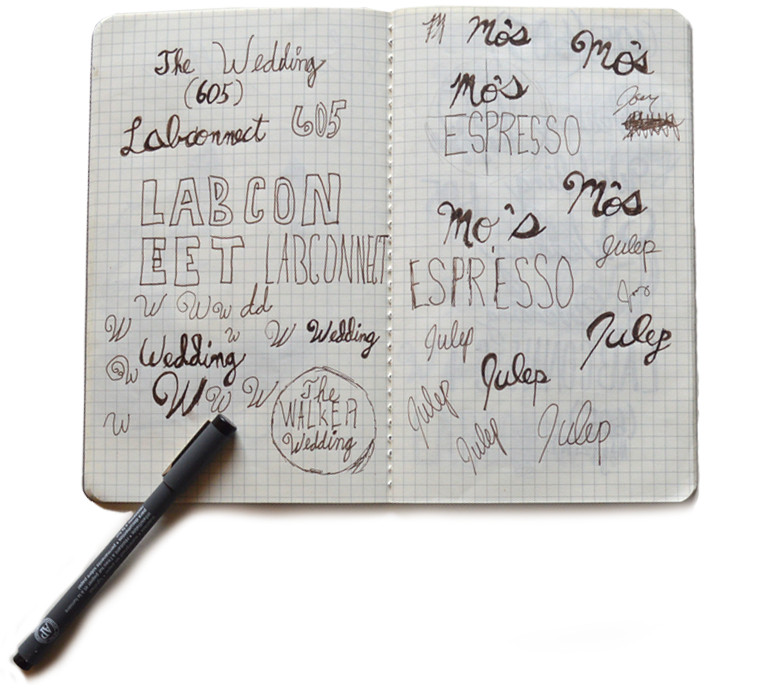 The Wedding
(605)
Labconnect 605
LABCON
EET LABCONNECT
W W W dd
W W W Wedding
W Wedding
W W W
W
The
WALKER
Wedding
M Mo's Mo's
Mo's
Joey
ESPRESSO
Mo's
Mo's
Julep
ESPRESSO
Julep Julep
Julep
Julep Julep Julep
AP